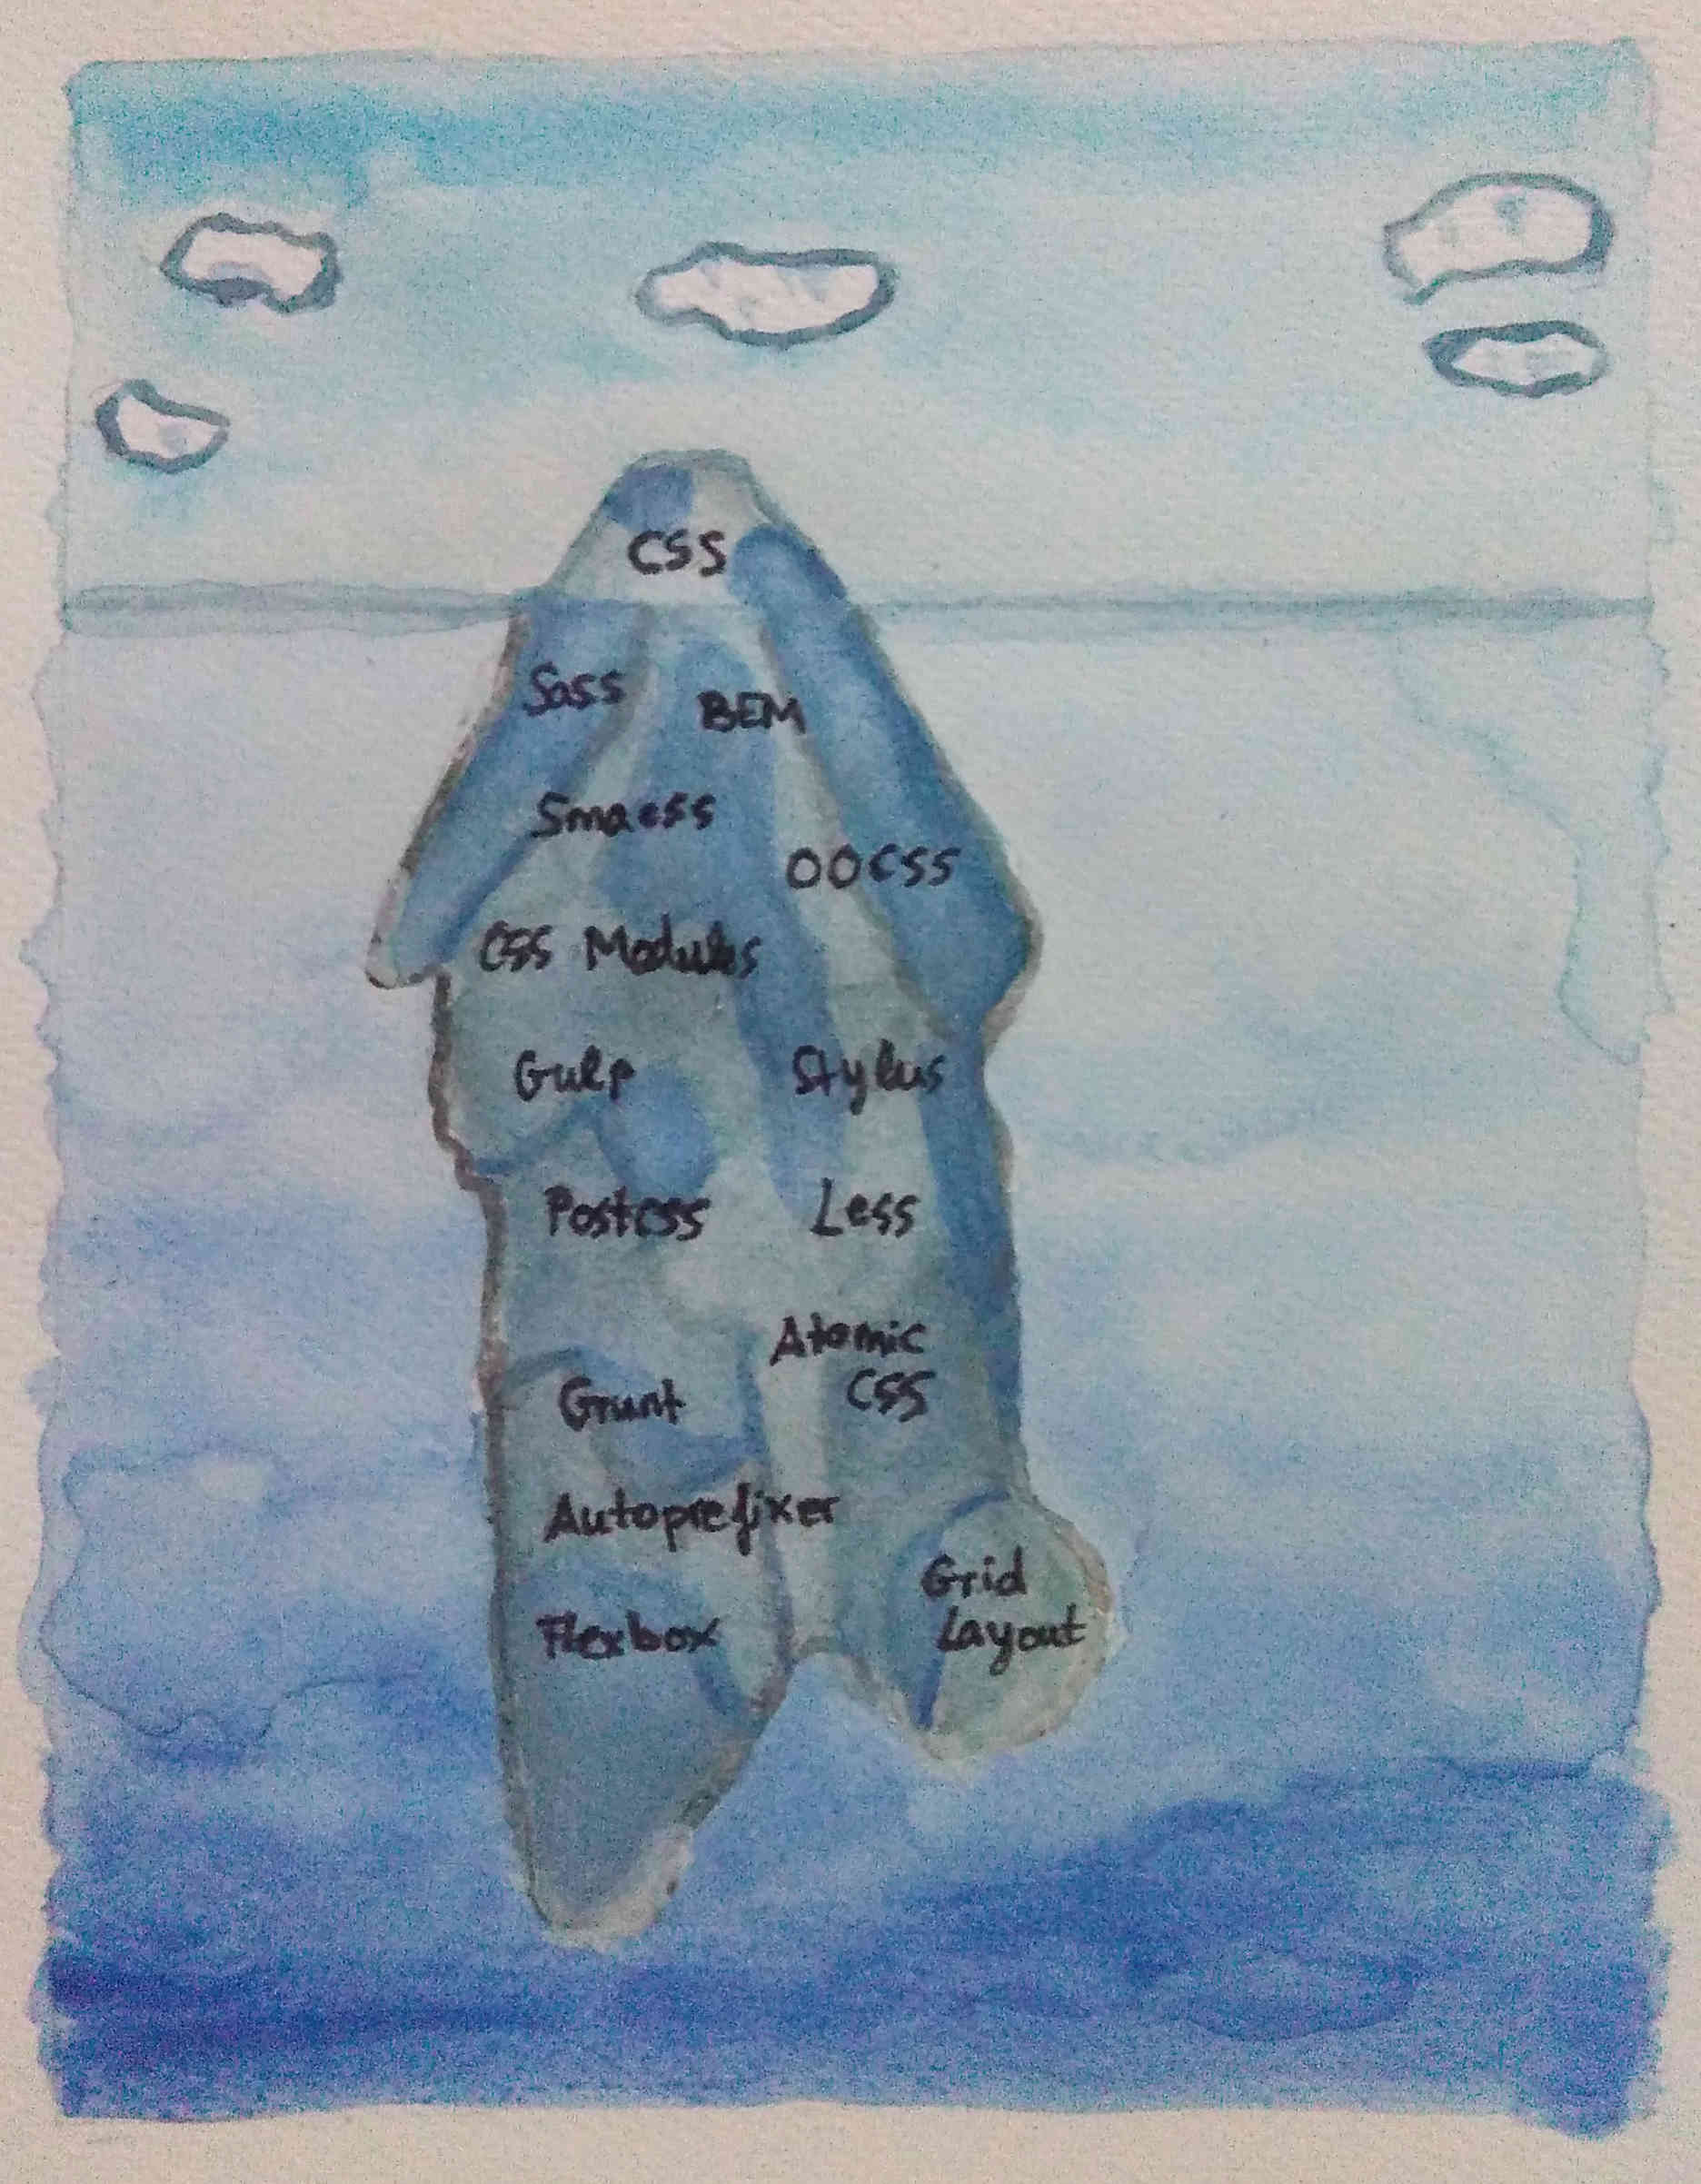 CSS
Sass
BEM
Smacss
OOCSS
CSS Modules
Gulp
Stylus
Postcss
Less
Atomic
CSS
Grunt
Autoprefixer
Grid
Layout
Flexbox